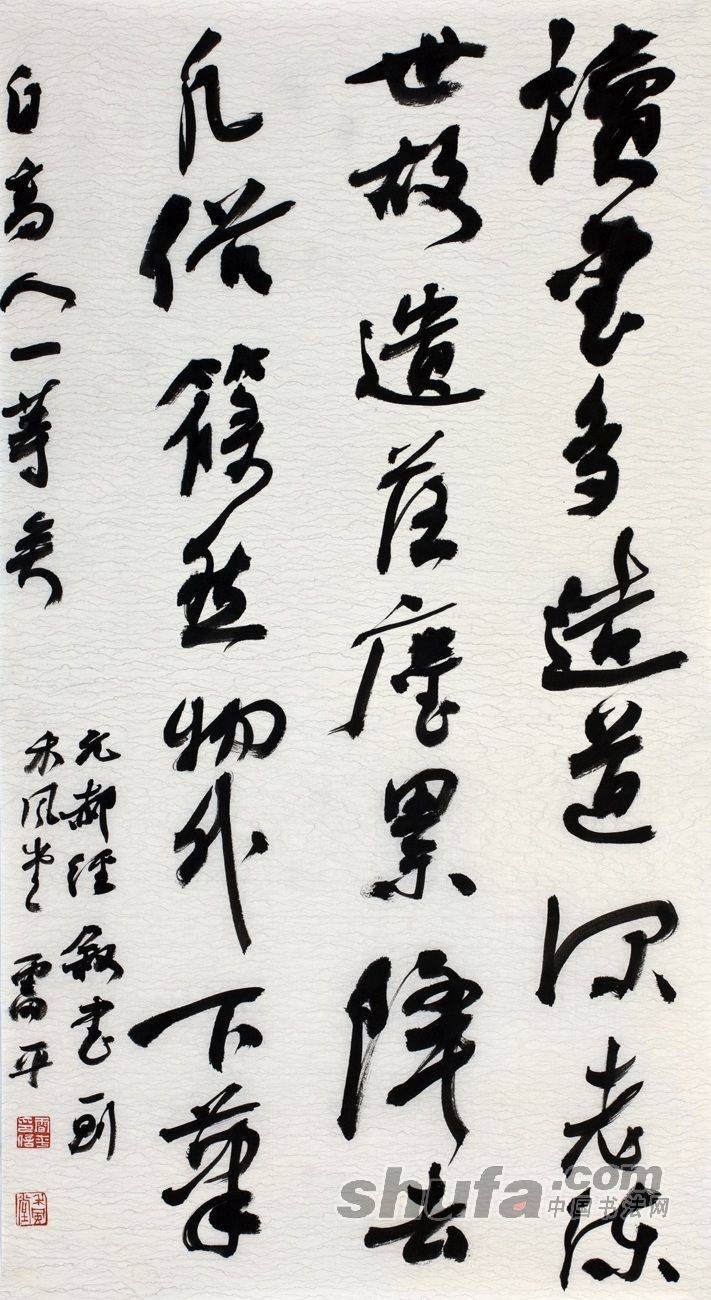 讀書多造道深老練
世故遺落塵累降去
凡俗篠然物外下筆
自高人一等矣
元郝經叙書一則
風堂 雷平
shufa.com
中国书法网